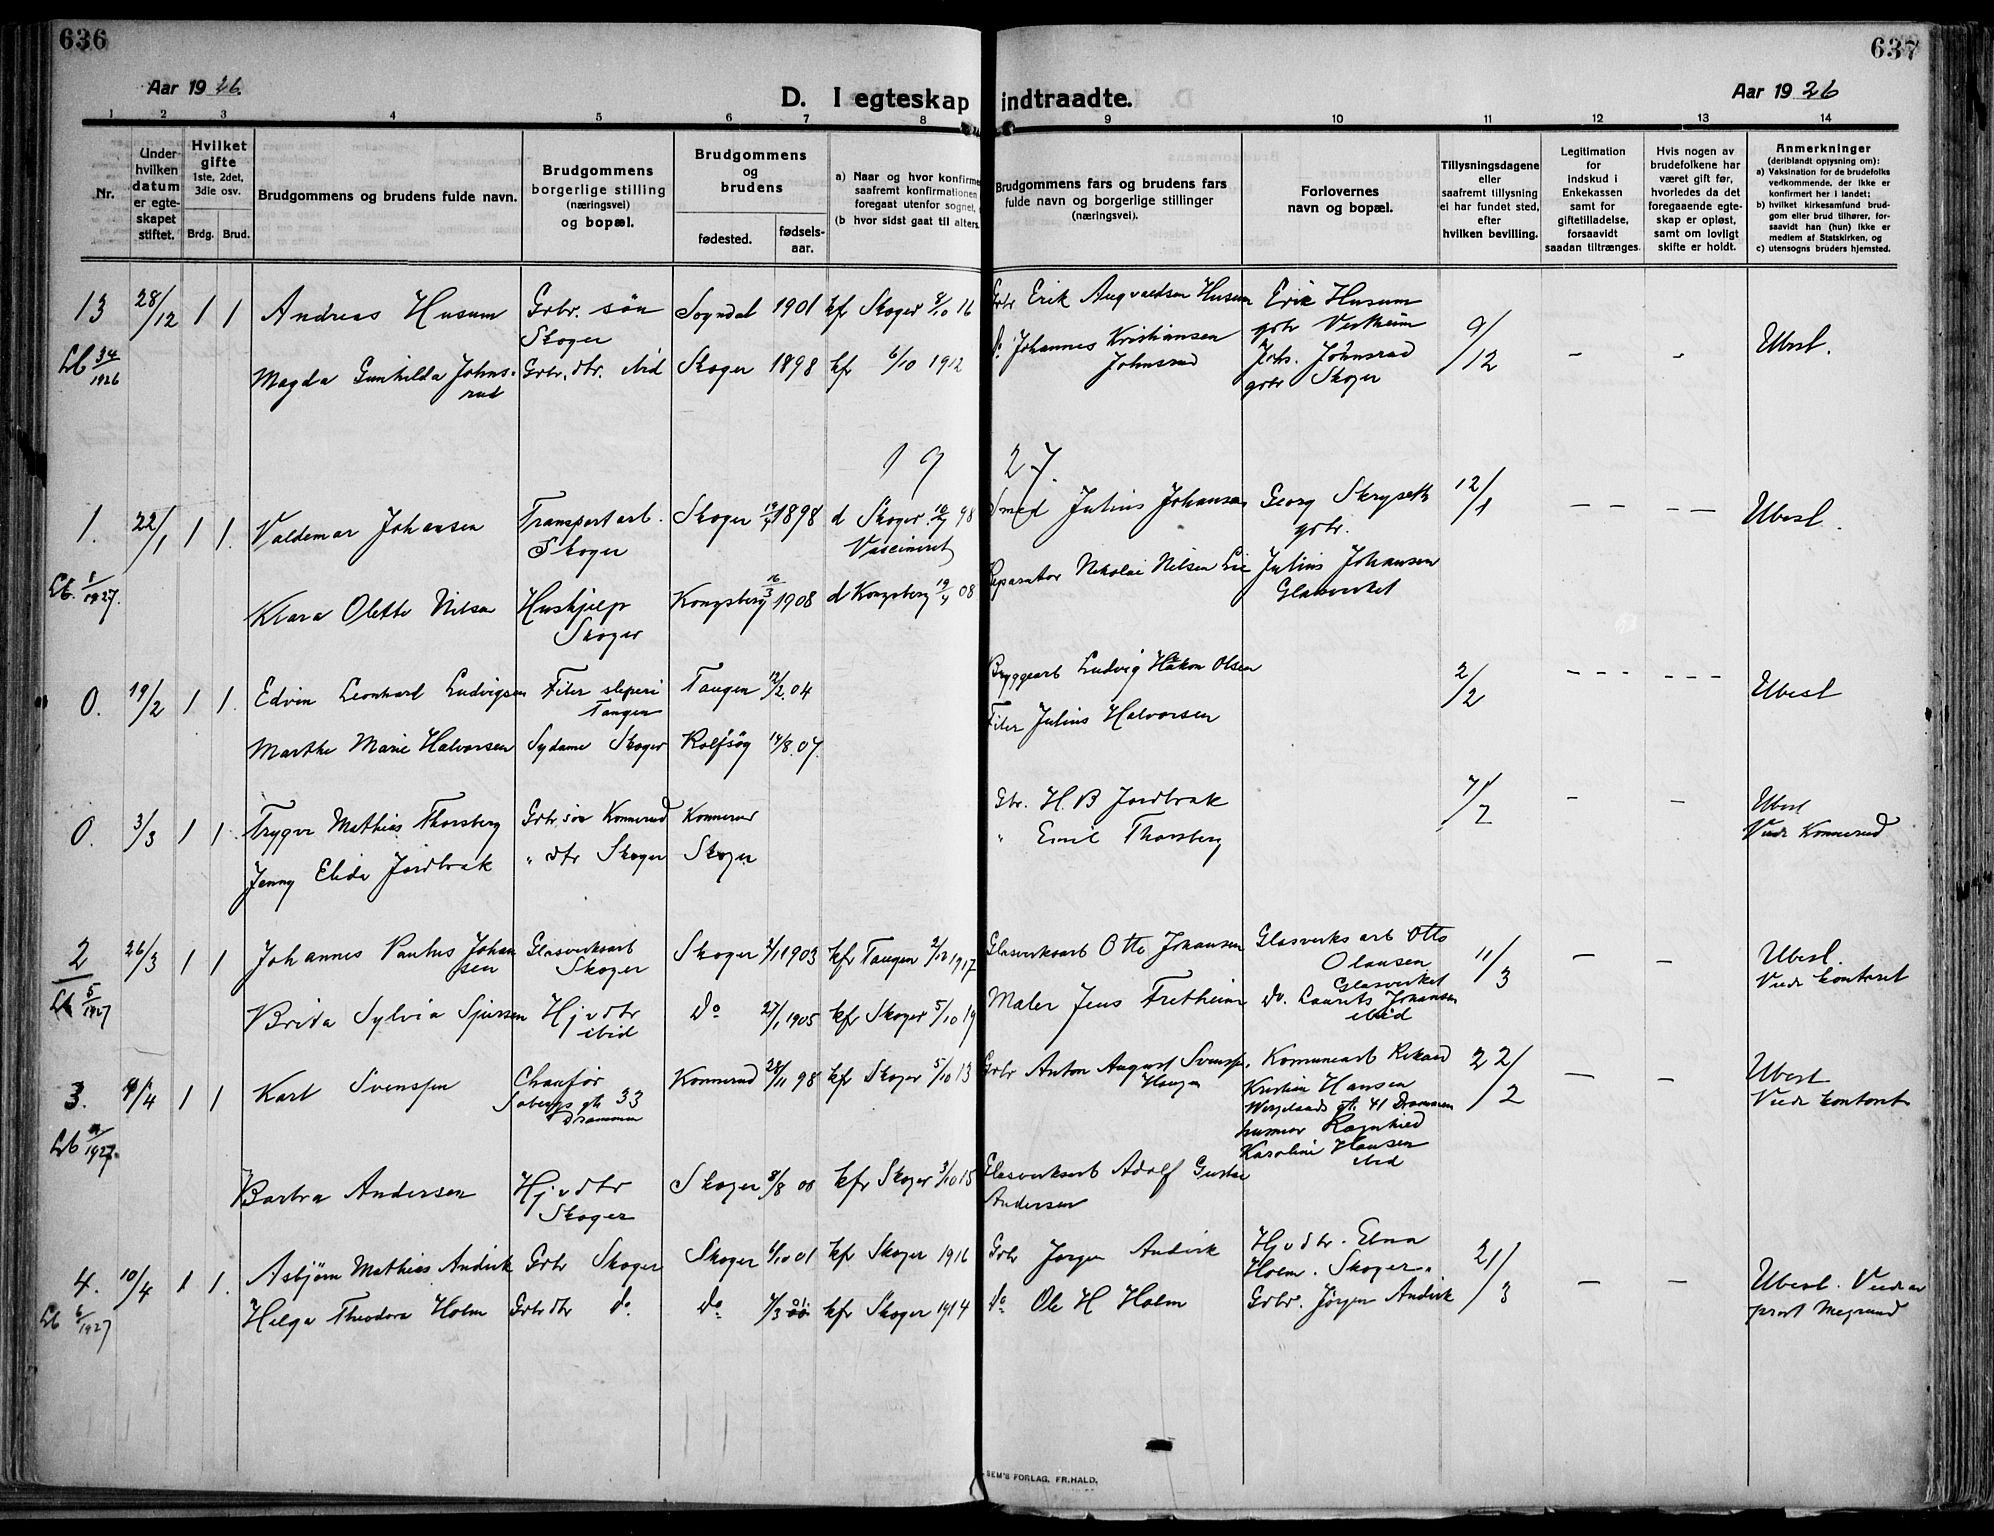 636
637
Aar 1926.
Aar 1926
D. I egteskap indtraadte.
1 2 3 4 5 6 7 8 9 10 11 12 13 14
Nr.
Under-
hvilken
datum
er egte-
skapet
stiftet.
Hvilket
gifte
1ste, 2det,
3die osv.
Brdg. Brud.
Brudgommens og brudens fulde navn.
Brudgommens
borgerlige stilling
(næringsvei)
og bopæl.
Brudgommens
og
brudens
fødested.
fødsels-
aar.
a) Naar og hvor konfirme
saafremt konfirmationen
foregaat utenfor sognet,
(b hvor sidst gaat til alters.
Brudgommens fars og brudens fars
fulde navn og borgerlige stillinger
(næringsvei).
Forlovernes
navn og bopæl.
Tillysningsdagene
eller
saafremt tillysning
ei har fundet sted,
efter
hvilken bevilling.
Legitimation
for
indskud i
Enkekassen
samt for
giftetilladelse,
forsaavidt
saadan tiltrænges.
Hvis nogen av
brudefolkene har
været gift før,
hvorledes da det
foregaaende egte-
skap er opløst,
samt om lovligt
skifte er holdt.
Anmerkninger
(deriblandt oplysning om):
a) Vaksination for de brudefolks
vedkommende, der ikke er
konfirmert her i landet;
b) hvilket kirkesamfund brud-
gom eller brud tilhører, for-
saavidt han (hun) ikke er
medlem af Statskirken, og
c) utensogns bruders hjemsted.
13 28/12 1 1 Andreas Husum Grbr. søn Sogndal 1901 kf Skoger 8/10 16 Grbr Erik Husum Erik Husum 9/12 - - Ubesl.
Skoger gbr
Lb 34/1926 Magda Gunhilda Johns- Grbr. dtr. ibid Skoger 1898 kf 6/10 1912 Do Johannes Kristiansen Johs. Johnsrud
rud Johnsrud gbr Skoger
1927.
1. 22/1 1 1. Valdemar Johansen Transportarb. Skoger 1898 d Skoger 98 Smed Julius Johansen Georg 12/1 - - - - Ubesl.
Skoger Vaccineret gbr.
Lb. 1/1927. Klara Olette Nilsen Hushjelp Kongsberg 16/3 1908 d Kongsberg 19/4 08 Reparatør Nikolai Nilsen Lie Julius Johansen
Skoger Glasverket
0. 19/2 1 1. Edvin Leonhart Ludvigsen Filer sliperi Tangen 12/2.04 Bryggearb Ludvig Håkon Olsen 2/2 - - - - - - Ubesl
Tangen
Marthe Marie Halvorsen Sydame Skoger Rolfsøy 14/8.07. Filer Julius Halvorsen
0. 3/3 1 1. Trygve Mathias Thorsberg Grbr. søn Konnerud Konnerud Gbr. H. B Jordbræk 7/2 - - Ubesl
Jenny Elida Jordbræk " dtr Skoger Skoger " Emil Thorsberg Viede Konnerud
2 26/3 1 1 Johannes Paulus Johan Glasverksarb Skoger 1903 kfr Tangen 2/12 1917 Glasverksarb Otto Johansen Glasverksarb Otto 11/3 - - Ubesl.
sen Skoger Olausen Viede kontoret
Glasverket
Lb 5/1927 Brida Sylvia Sjursen Hjv dtr Do 27/1 1905 kfr Skoger 5/10 19 Maler Jens Fretheim Do. Laurits Johansen
ibid ibid
3. 1 1 Karl Svenssen Chauför Konnerud 28/11 98 kfr Skoger 5/10 13 Grbr Anton August Svenssen Komunearb Rikard 22/2 - - Ubesl
gt 33 Haugen Kristian Hansen Viede kontoret
Drammen Wergelands gt. 41 Drammen
Lb /1927. husmor Ragnhild
Karoline Hansen
ibid
Barbra Andersen Hjv dtr Skoger 8/8 00 kfr Skoger 3/10 15 Glasverksarb Adolf Gustav
Skoger Andersen
4. 10/4 1 1. Asbjørn Mathias Andvik Grbr Skoger Skoger 6/10 01 kfr Skoger 1916 Grbr Jørgen Andvik Hjvdtr. Edna 21/3 - - Ubesl. Viede av
Holm. Skoger. prost
Lb 6/1927 Helga Theodora Holm Grbrdtr do. Do kfr Skoger 1914 Do Ole H Holm Grbr. Jørgen Andvik
SEM'S FORLAG, FR. HALD.